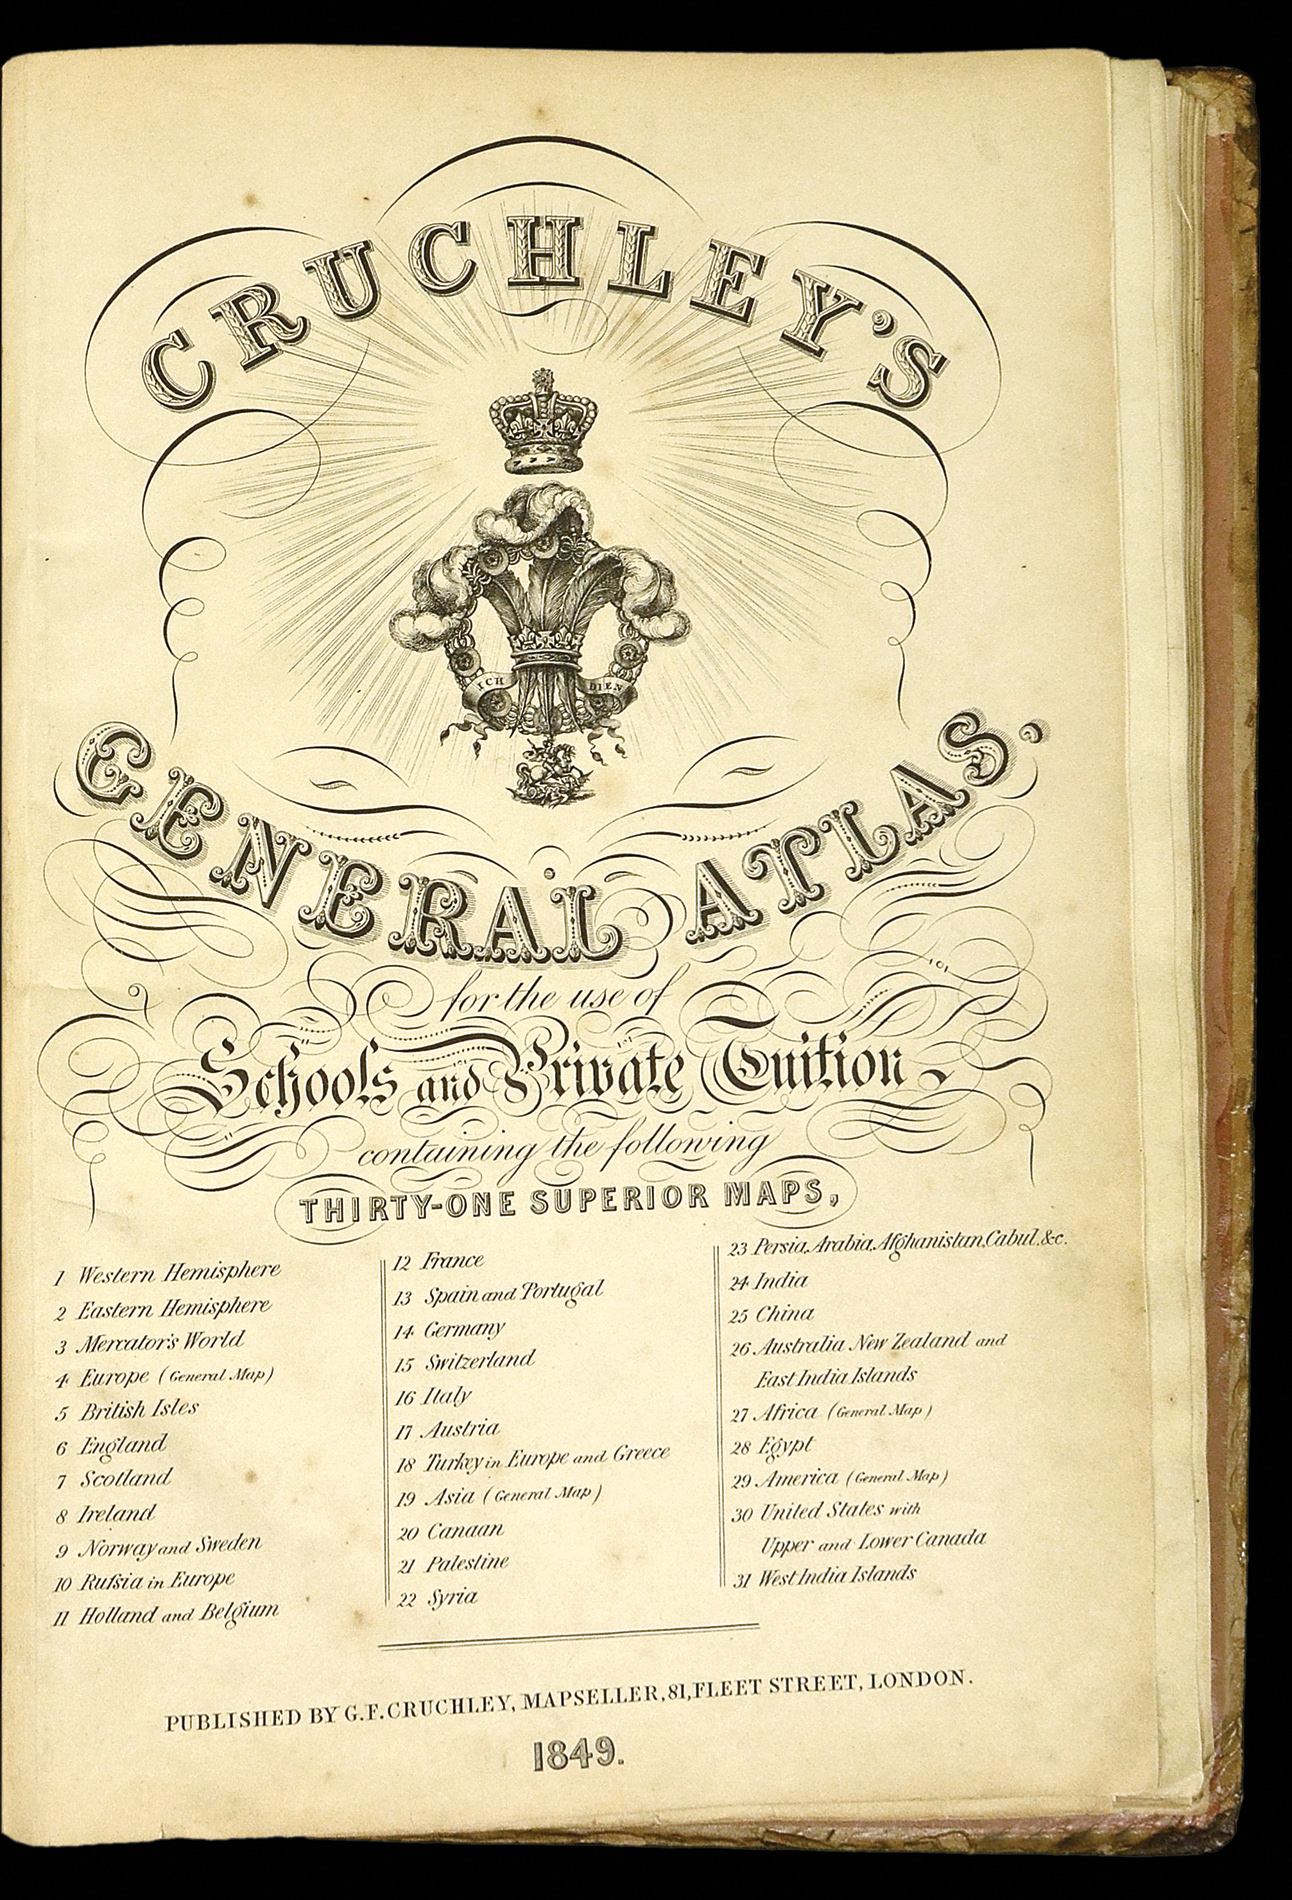 CRUCHLEY'S
ICH DIEN
GENERAL ATLAS;
for the use of
Schools and Private Tuition,
containing the following
THIRTY-ONE SUPERIOR MAPS,
1 Western Hemisphere
2 Eastern Hemisphere
3 Mercator's World
4 Europe (General Map)
5 British Isles
6 England
7 Scotland
8 Ireland
9 Norway and Sweden
10 Ruſsia in Europe
11 Holland and Belgium
12 France
13 Spain and Portugal
14 Germany
15 Switzerland
16 Italy
17 Austria
18 Turkey in Europe and Greece
19 Asia (General Map)
20 Canaan
21 Palestine
22 Syria
23 Persia, Arabia, Afghanistan, Cabul &c.
24 India
25 China
26 Australia New Zealand and
East India Islands
27 Africa (General Map)
28 Egypt
29 America (General Map)
30 United States with
Upper and Lower Canada
31 West India Islands
PUBLISHED BY G.F. CRUCHLEY, MAPSELLER, 81, FLEET STREET, LONDON.
1849.